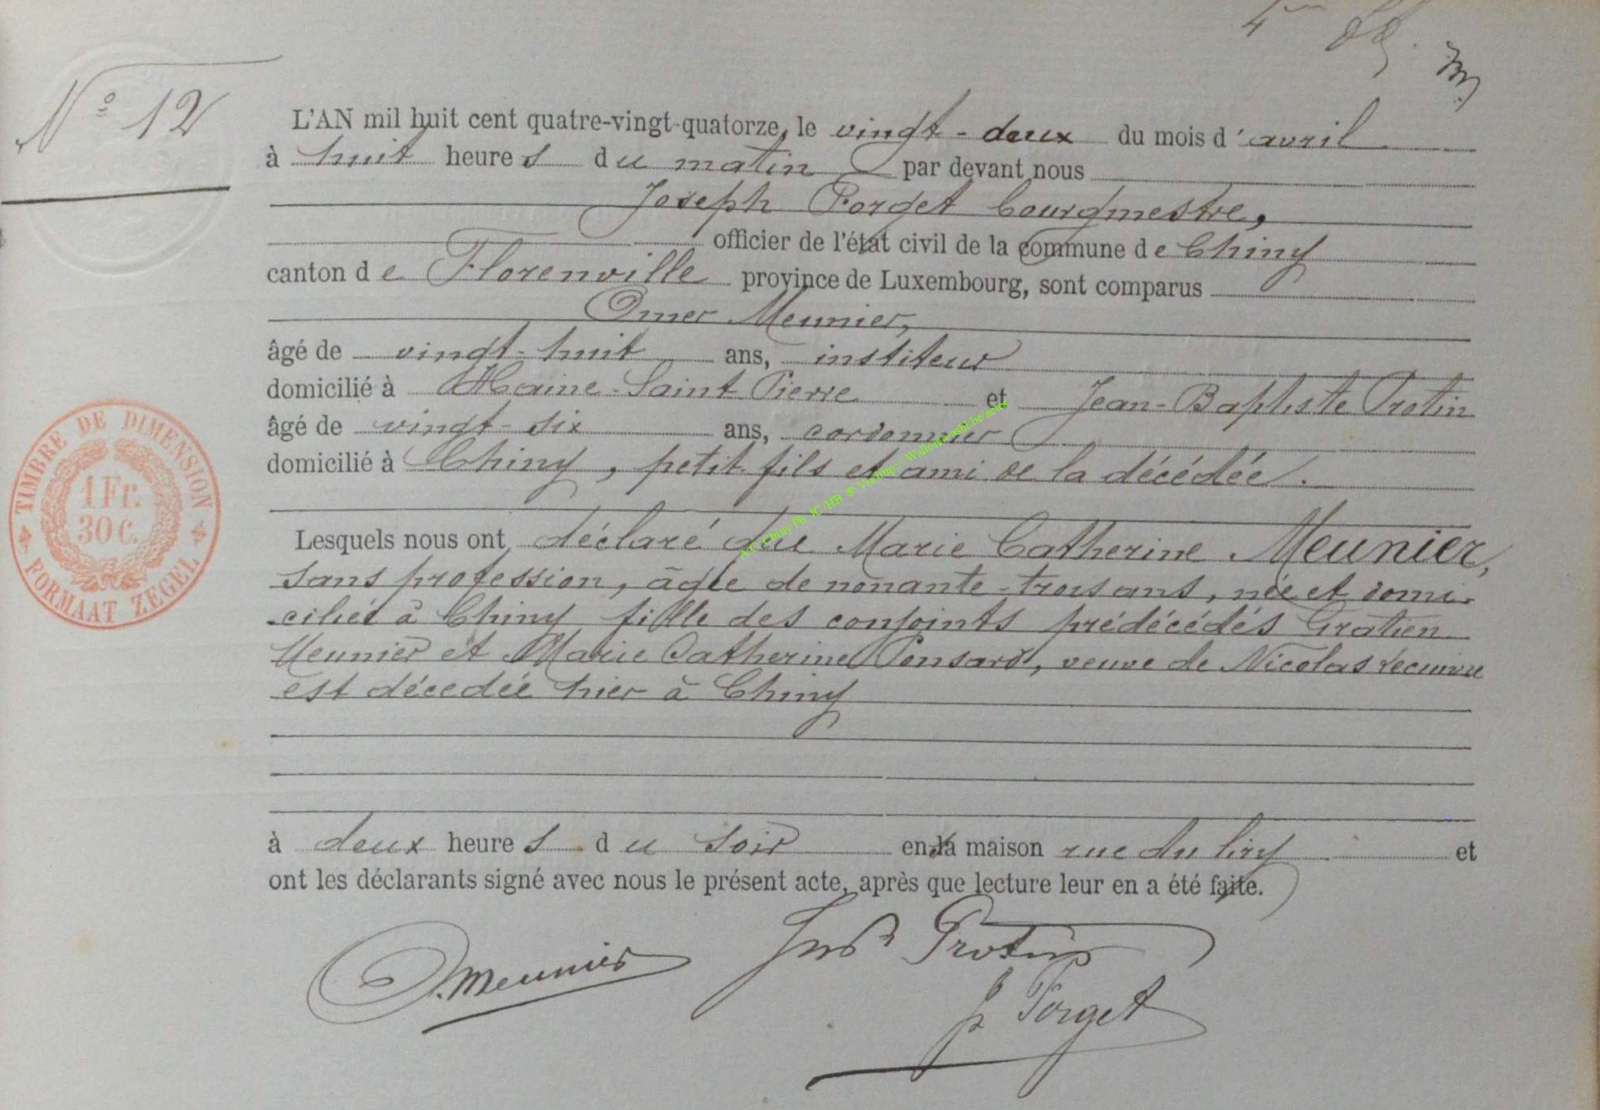 N° 12
L'AN mil huit cent quatre-vingt-quatorze, le vingt-deux du mois d'avril
à huit heures du matin par devant nous
Joseph Forget bourgmestre,
officier de l'état civil de la commune de Chiny
canton de Florenville province de Luxembourg, sont comparus
Omer Meunier,
âgé de vingt-huit ans, institeur
domicilié à Haine-Saint Pierre et Jean-Baptiste Protin
âgé de vingt-six ans, cordonnier
domicilié à Chiny, petit-fils et ami de la décédée.
Lesquels nous ont déclaré que Marie Catherine Meunier,
sans profession, âgée de nonante-trois ans, née et domi-
ciliée à Chiny fille des conjoints prédécédés Gratien
Meunier et Marie Catherine Ponsard, veuve de Nicolas
est décédée hier à Chiny
à deux heures du soir en la maison rue du et
ont les déclarants signé avec nous le présent acte, après que lecture leur en a été faite.
O. Meunier
Protin
J Forget
TIMBRE DE DIMENSION
1 Fr.
30 C.
FORMAAT ZEGEL